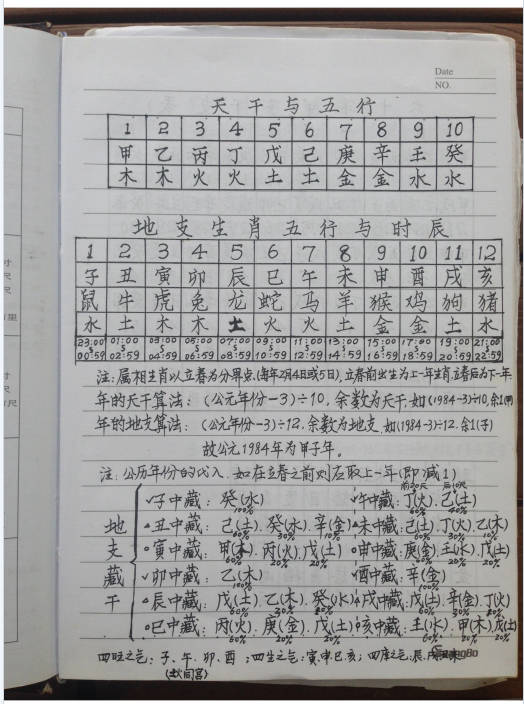 Date
NO.
天干与五行
1 2 3 4 5 6 7 8 9 10
甲 乙 丙 丁 戊 己 庚 辛 壬 癸
木 木 火 火 土 土 金 金 水 水
地支生肖五行与时辰
1 2 3 4 5 6 7 8 9 10 11 12
子 丑 寅 卯 辰 巳 午 未 申 酉 戌 亥
鼠 牛 虎 兔 龙 蛇 马 羊 猴 鸡 狗 猪
水 土 木 木 土 火 火 土 金 金 土 水
23:00 01:00 03:00 05:00 07:00 09:00 11:00 13:00 15:00 17:00 19:00 21:00
00:59 02:59 04:59 06:59 08:59 10:59 12:59 14:59 16:59 18:59 20:59 22:59
注:属相生肖以立春为分界点(每年2月4日或5日),立春前出生为上一年生肖,立春后为下一年.
年的天干算法:(公元年份-3)÷10,余数为天干,如(1984-3)÷10,余1(甲)
年的地支算法:(公元年份-3)÷12,余数为地支,如(1984-3)÷12,余1(子)
故公元1984年为甲子年。
注:公历年份的代入,如在立春之前则应取上一年(即减1)
前20天 后10天
子中藏:癸(水) 午中藏:丁(火).己(土)
100% 60% 40%
丑中藏:己(土).癸(水).辛(金) 未中藏:己(土).丁(火).乙(木)
60% 30% 10% 60% 30% 10%
寅中藏:甲(木).丙(火).戊(土) 申中藏:庚(金).壬(水).戊(土)
60% 20% 20% 60% 20% 20%
地支藏干
卯中藏:乙(木) 酉中藏:辛(金)
100% 100%
辰中藏:戊(土).乙(木).癸(水) 戌中藏:戊(土).辛(金).丁(火)
60% 30% 60% 30%
巳中藏:丙(火).庚(金).戊(土) 亥中藏:壬(水).甲(木).戊(土)
60% 20% 20% 60% 20%
四旺之气:子、午、卯、酉;四生之气:寅.申.巳.亥;四库之气:辰.戌